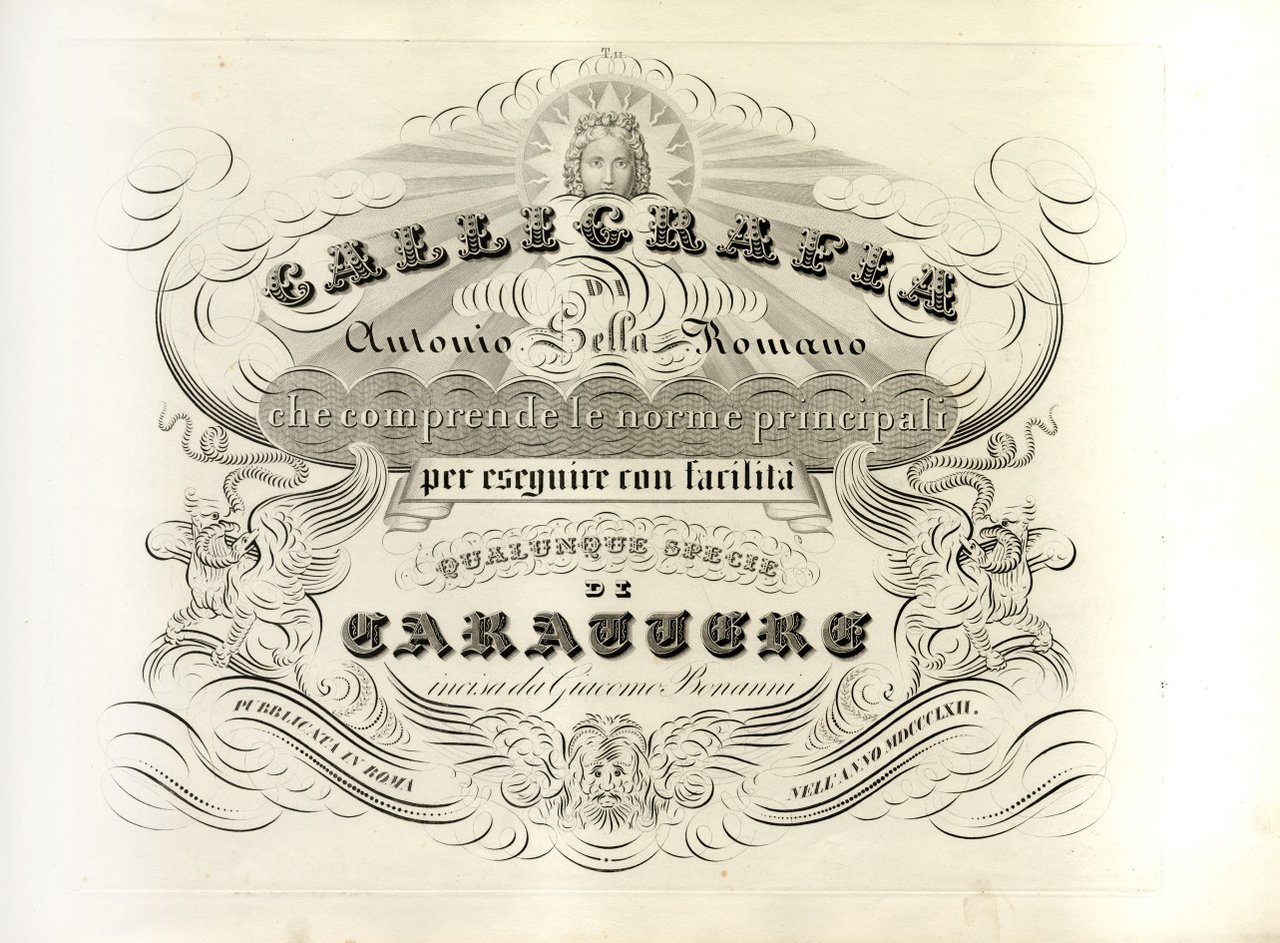 T. II.
CALLIGRAFIA
DI
Antonio Sella Romano
che comprende le norme principali
per eseguire con facilità
QUALUNQUE SPECIE
DI
CARATTERE
incisa da Giacomo Bonanni
PUBBLICATA IN ROMA
NELL'ANNO MDCCCLXII.